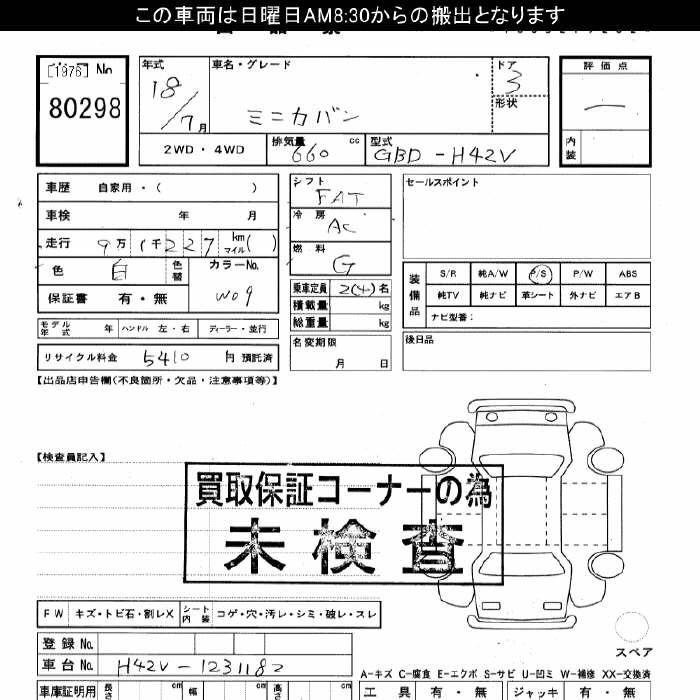 この車両は日曜日AM8:30からの搬出となります
[1976] No
80298
年式 18/7月
車名・グレード ミニカバン
ドア 3
形状
評価点 一
内装
2WD・4WD 排気量 660 cc 型式 GBD-H42V
車歴 自家用・( )
車検 年 月
走行 9万1千227 km マイル( )
色 白 色替 カラーNo. W09
保証書 有・無
モデル年式 年 ハンドル 左・右 ディーラー・並行
リサイクル料金 5410 円 預託済
シフト FAT
冷房 AC
燃料 G
乗車定員 2(4)名
積載量 kg
総重量 kg
名変期限 月 日
セールスポイント
装備品
S/R 純A/W P/S P/W ABS
純TV 純ナビ 革シート 外ナビ エアB
ナビ型番:
後日品
【出品店申告欄(不良箇所・欠品・注意事項等)】
【検査員記入】
買取保証コーナーの為
未検査
FW キズ・トビ石・割レX シート内装 コゲ・穴・汚レ・シミ・破レ・スレ
登録No.
車台No. H42V-1231182
車庫証明用 長さ cm 幅 cm 高さ cm
スペア
A-キズ C-腐食 E-エクボ S-サビ U-凹ミ W-補修 XX-交換済
工具 有・無 ジャッキ 有・無